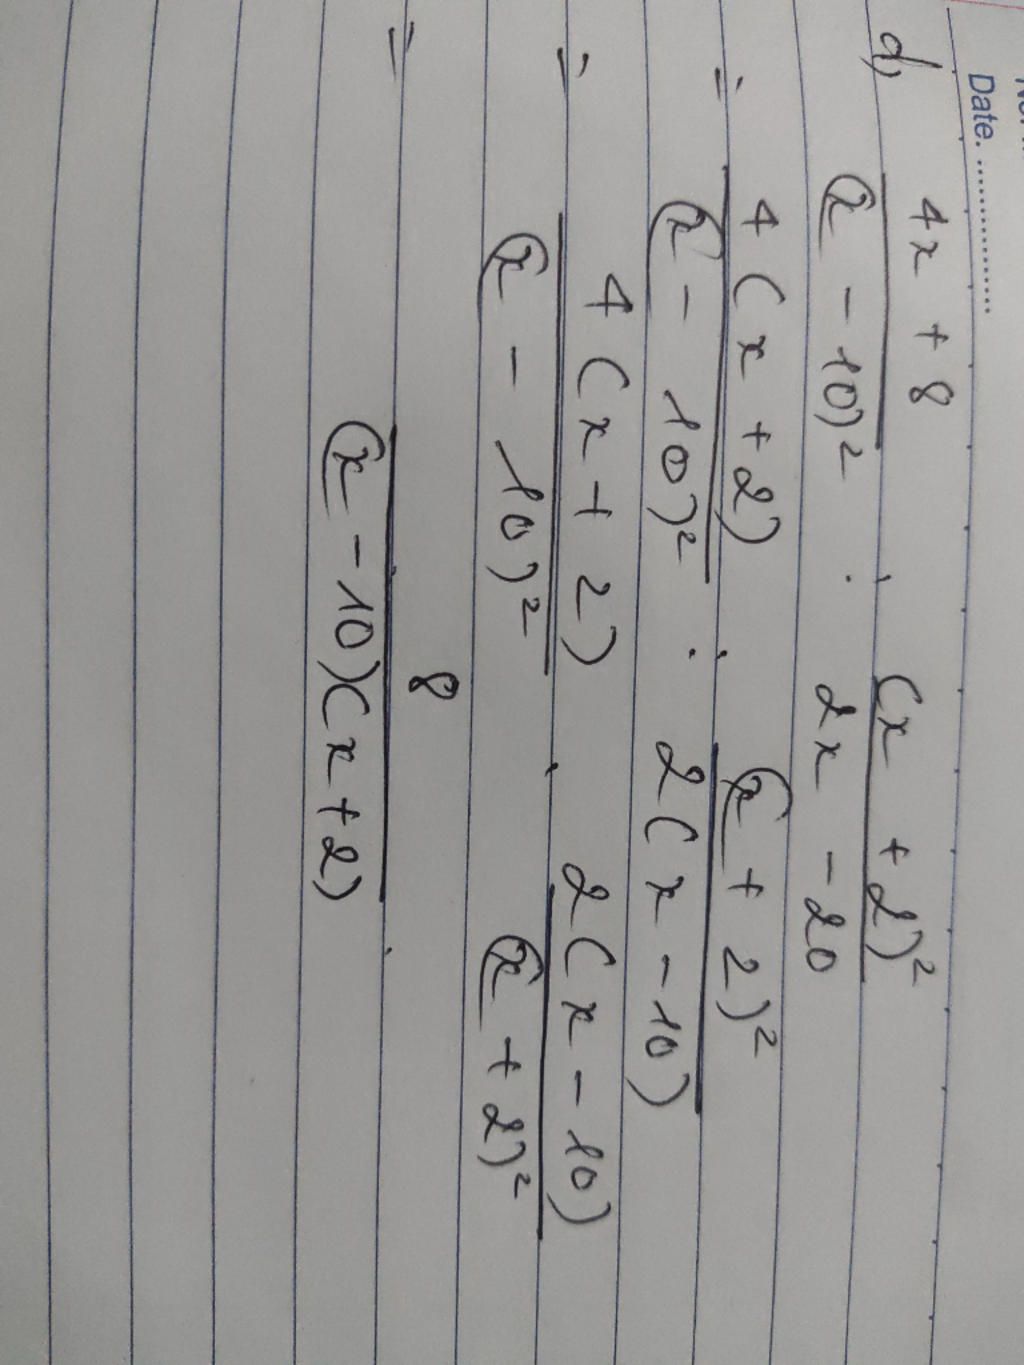 Date. ..................
d) (4x + 8)/(x - 10)² : (x + 2)²/(2x - 20)
= 4(x + 2)/(x - 10)² : (x + 2)²/2(x - 10)
= 4(x + 2)/(x - 10)² . 2(x - 10)/(x + 2)²
= 8/(x - 10)(x + 2) .